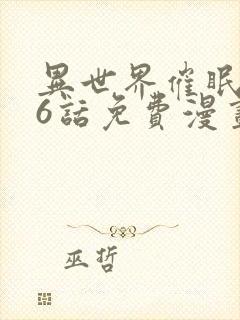 異世界催眠
6話免費漫畫
巫哲